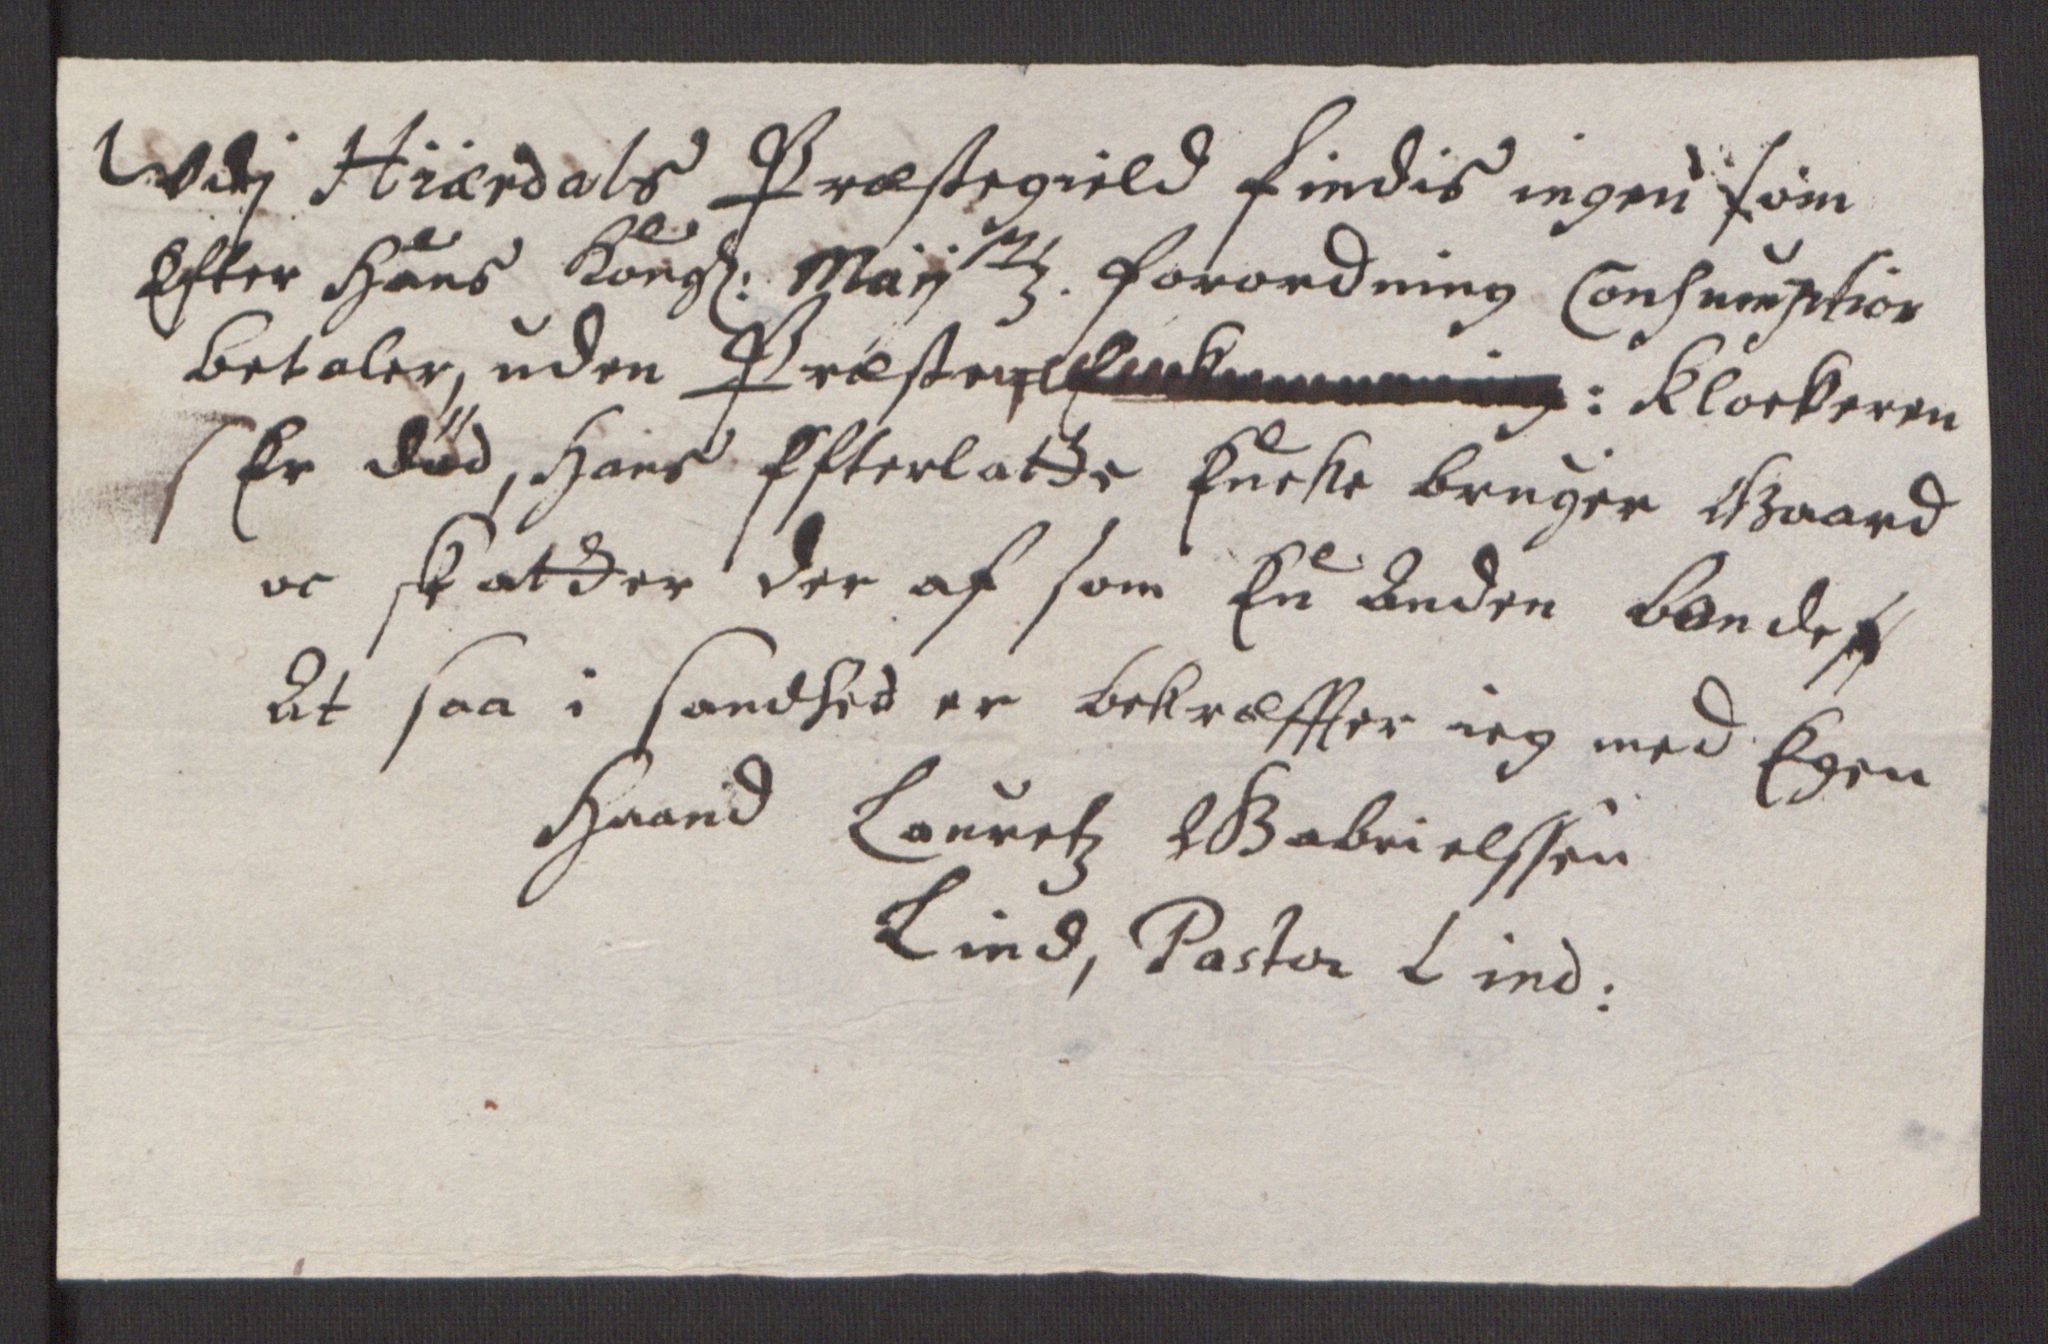 Udj Hiærdals Præstegield findis ingen som
Efter Hans Kongl: Maijstz. forordning Consumption
betaler, uden Præsten : Klockeren
Er död, Hans Efterlatte Encke bruger Gaard
oc skatter der af som En Anden bonde
At saa i sandhed er bekræffter ieg med Egen
Haand Lauretz Gabrielssen
Lind, Pastor Lind: